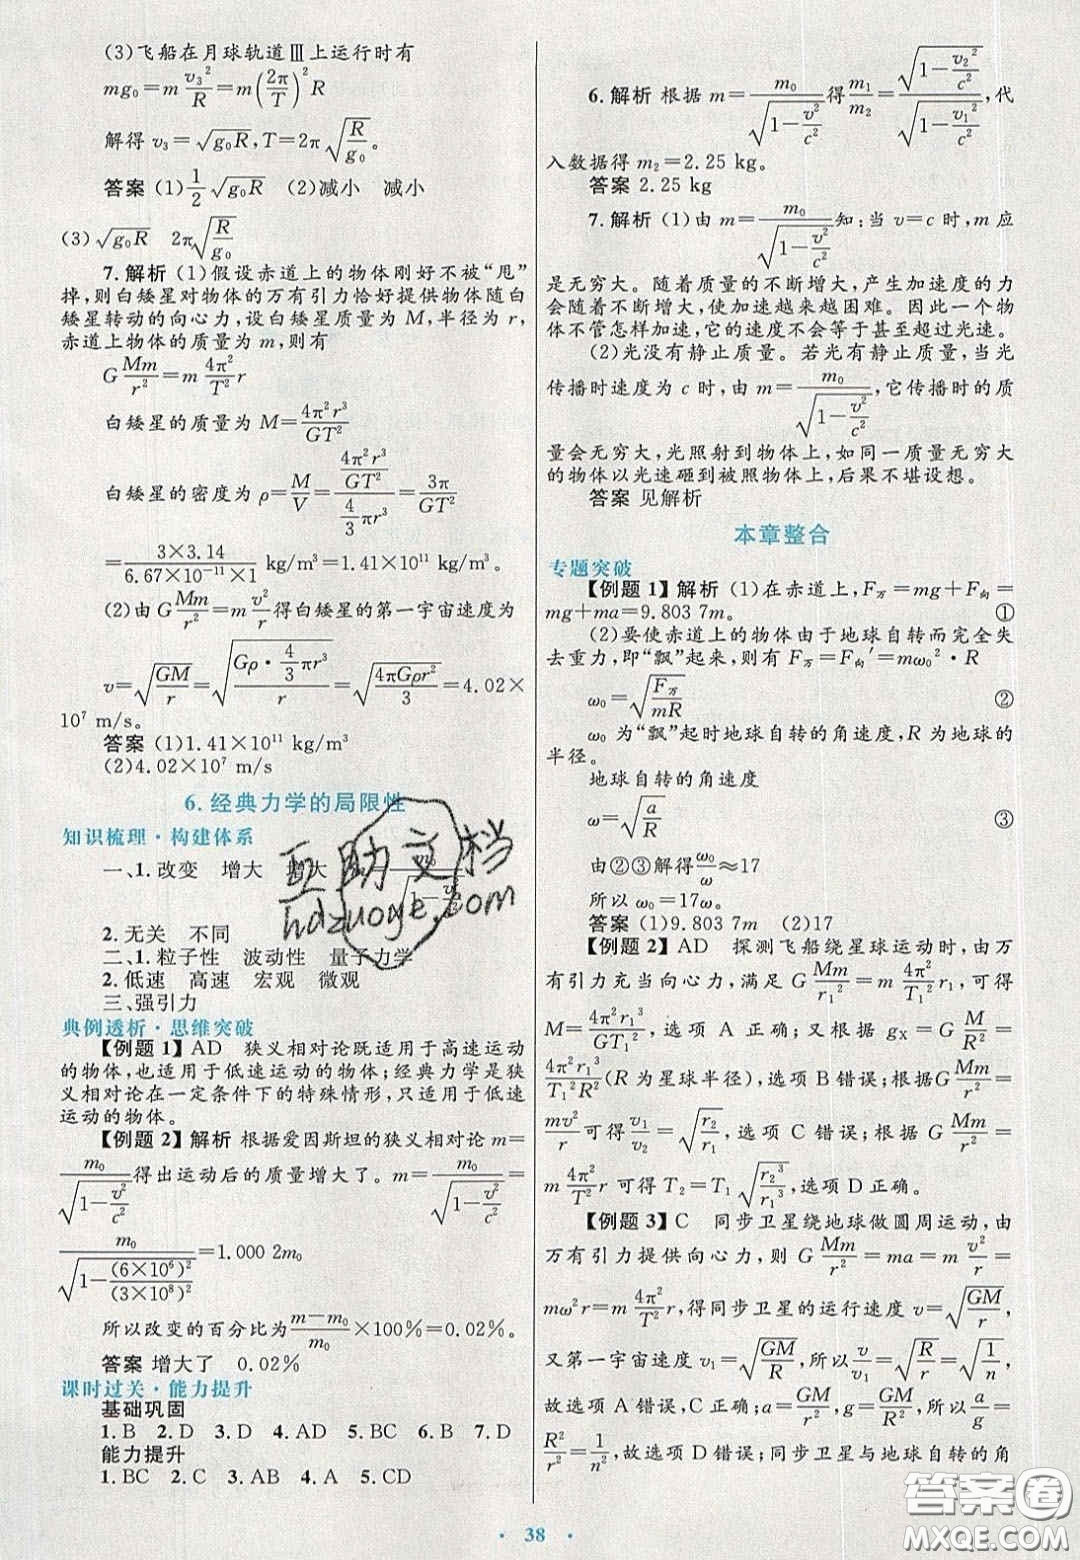 (3)飞船在月球轨道Ⅲ上运行时有
mg₀=m v₃²/R=m(2π/T)²R
解得 v₃=√(g₀R),T=2π√(R/g₀)。
答案 (1)1/2 √(g₀R) (2)减小 减小
(3)√(g₀R) 2π√(R/g₀)
7.解析 (1)假设赤道上的物体刚好不被“甩”
掉,则白矮星对物体的万有引力恰好提供物体随白
矮星转动的向心力,设白矮星质量为 M,半径为 r,
赤道上物体的质量为 m,则有
G Mm/r²=m 4π²/T² r
白矮星的质量为 M=4π²r³/GT²
白矮星的密度为 ρ=M/V=(4π²r³/GT²)/(4/3 πr³)=3π/GT²
=3×3.14/(6.67×10⁻¹¹×1) kg/m³=1.41×10¹¹ kg/m³
(2)由 G Mm/r²=m v²/r 得白矮星的第一宇宙速度为
v=√(GM/r)=√(Gρ·4/3 πr³/r)=√(4πGρr²/3)=4.02×
10⁷ m/s。
答案 (1)1.41×10¹¹ kg/m³
(2)4.02×10⁷ m/s
6.经典力学的局限性
知识梳理·构建体系
一、1.改变 增大 增大
2.无关 不同
二、1.粒子性 波动性 量子力学
2.低速 高速 宏观 微观
三、强引力
典例透析·思维突破
【例题 1】AD 狭义相对论既适用于高速运动
的物体,也适用于低速运动的物体;经典力学是狭
义相对论在一定条件下的特殊情形,只适用于低速
运动的物体。
【例题 2】解析 根据爱因斯坦的狭义相对论 m=
m₀/√(1-v²/c²) 得出运动后的质量增大了。m=m₀/√(1-v²/c²)=
m₀/√(1-(6×10⁶)²/(3×10⁸)²)=1.000 2m₀
所以改变的百分比为 (m-m₀)/m₀×100%=0.02%。
答案 增大了 0.02%
课时过关·能力提升
基础巩固
1.B 2.D 3.D 4.AD 5.BC 6.B 7.D
能力提升
1.BC 2.C 3.AB 4.A 5.CD
6.解析 根据 m=m₀/√(1-v²/c²) 得 m₁/m₂=√(1-v₂²/c²)/√(1-v₁²/c²),代
入数据得 m₂=2.25 kg。
答案 2.25 kg
7.解析 (1)由 m=m₀/√(1-v²/c²) 知:当 v=c 时,m 应
是无穷大。随着质量的不断增大,产生加速度的力
会随着不断增大,使加速越来越困难。因此一个物
体不管怎样加速,它的速度不会等于甚至超过光速。
(2)光没有静止质量。若光有静止质量,当光
传播时速度为 c 时,由 m=m₀/√(1-v²/c²),它传播时的质
量会无穷大,光照射到物体上,如同一质量无穷大
的物体以光速砸到被照物体上,后果不堪设想。
答案 见解析
本章整合
专题突破
【例题 1】解析 (1)在赤道上,F万=mg+F向=
mg+ma=9.803 7m。 ①
(2)要使赤道上的物体由于地球自转而完全失
去重力,即“飘”起来,则有 F万=F向′=mω₀²·R
ω₀=√(F万/mR) ②
ω₀ 为“飘”起时地球自转的角速度,R 为地球的
半径。
地球自转的角速度
ω=√(a/R) ③
由②③解得 ω₀/ω≈17
所以 ω₀=17ω。
答案 (1)9.803 7m (2)17
【例题 2】AD 探测飞船绕星球运动时,由万
有引力充当向心力,满足 G Mm/r₁²=m 4π²/T₁² r₁,可得
M=4π²r₁³/GT₁²,选项 A 正确;又根据 gX=G M/R²=
4π²r₁³/T₁²R²(R 为星球半径),选项 B 错误;根据 G Mm/r²=
mv²/r 可得 v₁/v₂=√(r₂/r₁),选项 C 错误;根据 G Mm/r²=
m 4π²/T² r 可得 T₂=T₁√(r₂³/r₁³),选项 D 正确。
【例题 3】C 同步卫星绕地球做圆周运动,由
万有引力提供向心力,则 G Mm/r²=ma=m v²/r=
mω²r=m 4π²/T² r,得同步卫星的运行速度 v=√(GM/r),
又第一宇宙速度 v₁=√(GM/R),所以 v/v₁=√(R/r)=√(1/n),
故选项 A 错误,选项 C 正确;a=GM/r²,g=GM/R²,所以 a/g=
R²/r²=1/n²,故选项 D 错误;同步卫星与地球自转的角
38
互助文档
hdzuoye.com
答案圈
MXQE.COM